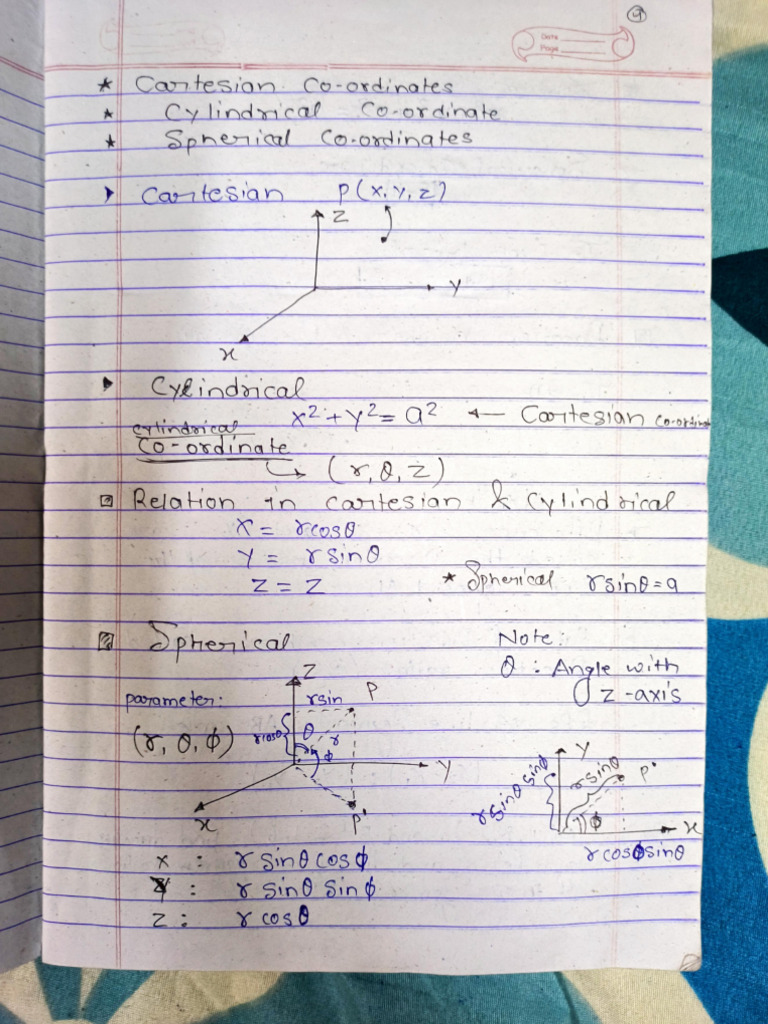 4
Date
Page
* Cartesian Co-ordinates
* Cylindrical Co-ordinate
* Spherical Co-ordinates
Cartesian P(x, y, z)
z
y
x
Cylindrical
x² + y² = a² ← Cartesian co-ordinate
cylindrical
Co-ordinate
(r, θ, z)
Relation in cartesian & cylindrical
x = rcosθ
y = r sinθ
z = z
* Spherical rsinθ = a
Spherical
Note:
θ : Angle with
z-axis
parameter:
(r, θ, ϕ)
z
rsin
P
rcosθ
θ
r
ϕ
y
x
P'
y
rsinθ sinϕ
rsinθ
P'
ϕ
x
rcosϕsinθ
x : r sinθ cosϕ
y : r sinθ sinϕ
z : r cosθ